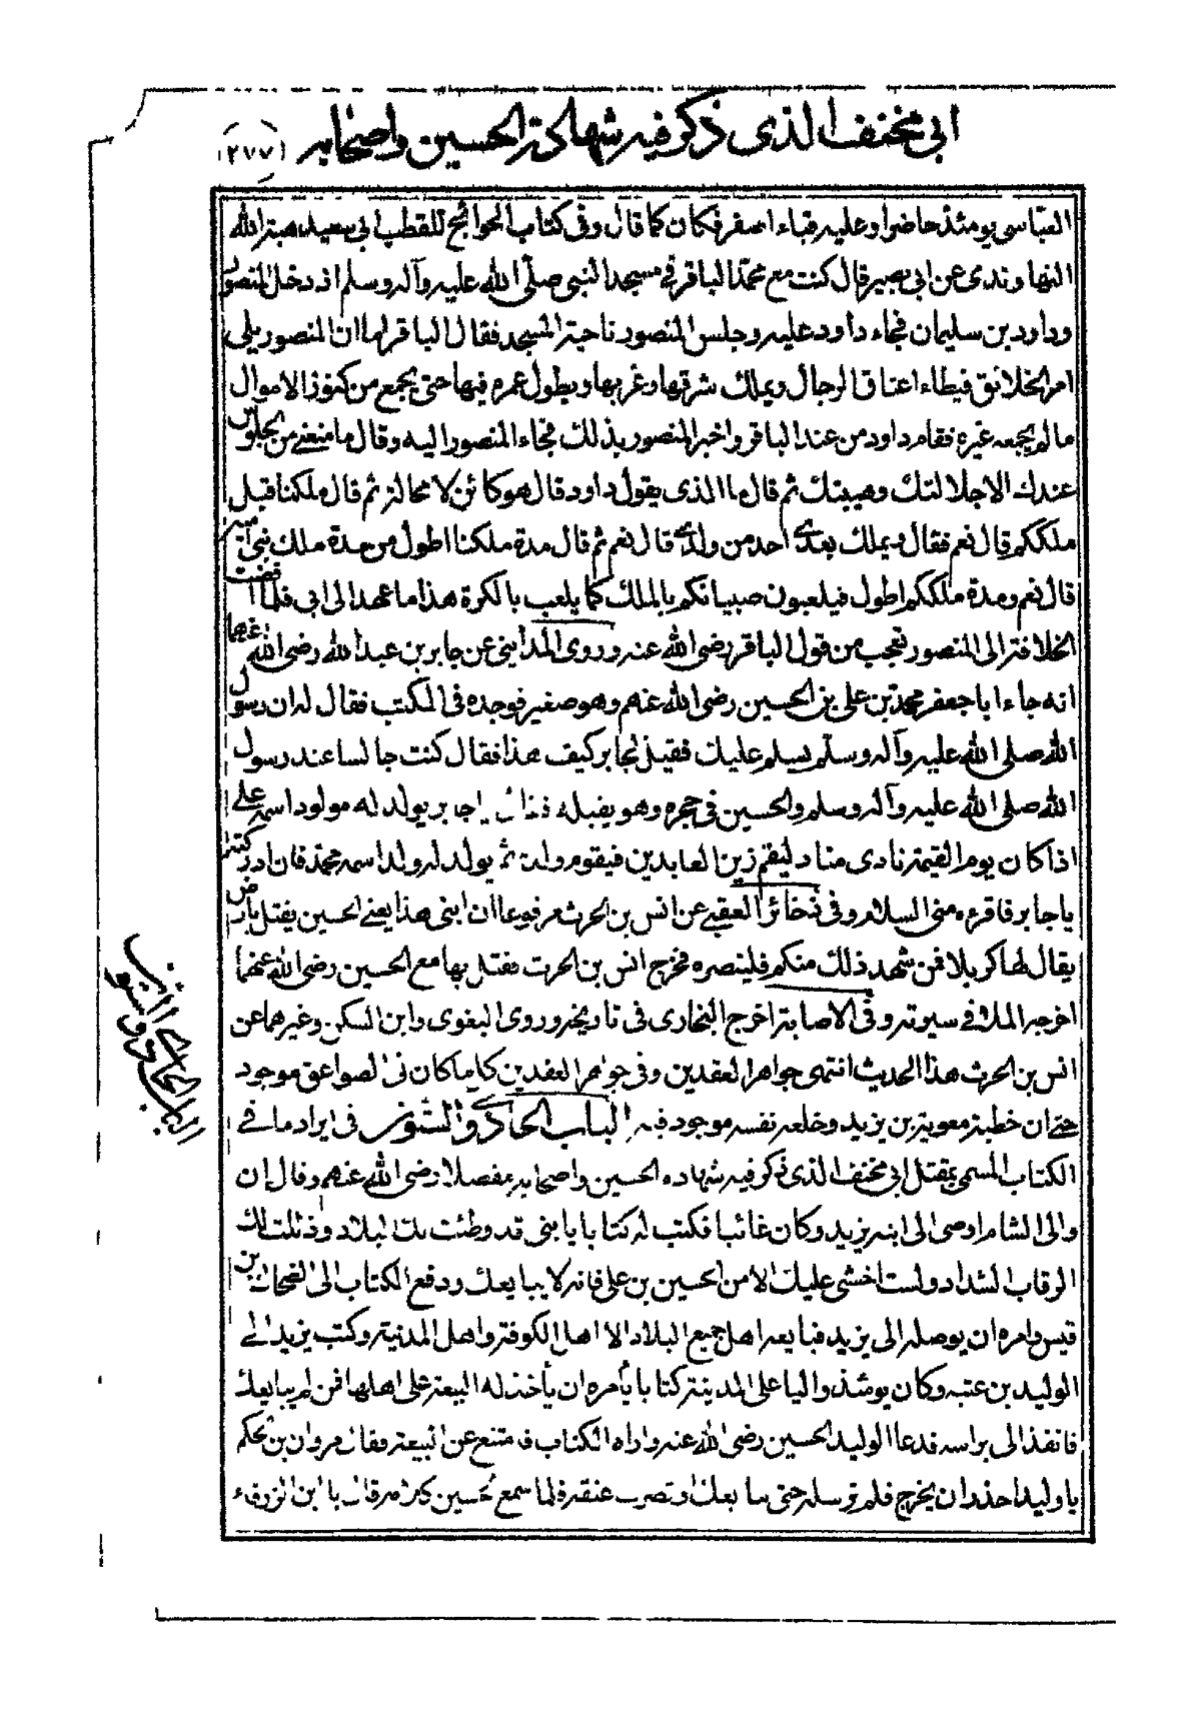 ابى مخنف الذى ذكر فيه شهادة الحسين واصحابه (٢٧٧)
العباسى يومئذ حاضرا وعليه قباء اصفر فكان كما قال وفى كتاب الخوائج للقطب ابى سعيد هبة الله
النهاوندى عن ابى بصير قال كنت مع محمد الباقر فى مسجد النبى صلى الله عليه وآله وسلم اذ دخل المنصور
وداود بن سليمان فجاء داود عليه وجلس المنصور ناحية المسجد فقال الباقر اما ان المنصور يلى
امر الخلائق فيطاء اعناق الرجال ويملك شرقها وغربها ويطول عمره فيها حتى يجمع من كنوز الاموال
ما لم يجمعه غيره فقام داود من عند الباقر واخبر المنصور بذلك فجاء المنصور اليه وقال ما منعنى من الجلوس
عندك الا جلالتك وهيبتك ثم قال ما الذى يقول داود قال هو كائن لا محالة ثم قال ملكنا قبل
ملككم قال نعم فقال ويملك بعدى احد من ولدى قال نعم ثم قال مدة ملكنا اطول من مدة ملك بنى امية
قال نعم ومدة ملككم اطول فيلعبون صبيانكم بالملك كما يلعب بالكرة هذا ما عهد الى ابى فلما افضت
الخلافة الى المنصور تعجب من قول الباقر رضى الله عنه وروى المداينى عن جابر بن عبد الله رضى الله عنهما
انه جاء ابا جعفر محمد بن على بن الحسين رضى الله عنهم وهو صغير فوجده فى المكتب فقال له ان رسول
الله صلى الله عليه وآله وسلم يسلم عليك فقيل لجابر كيف هذا فقال كنت جالسا عند رسول
الله صلى الله عليه وآله وسلم والحسين فى حجره وهو يقبله فقال يا جابر يولد له مولود اسمه على
اذا كان يوم القيمة نادى مناد ليقم زين العابدين فيقوم ولده ثم يولد له ولد اسمه محمد فان ادركته
يا جابر فاقرءه منى السلام وفى ذخائر العقبى عن انس بن الحرث مرفوعا ان ابنى هذا يعنى الحسين يقتل بارض
يقال لها كربلا فمن شهد ذلك منكم فلينصره فخرج انس بن الحرث فقتل بها مع الحسين رضى الله عنهما
اخرجه الملا فى سيرته وفى الاصابة اخرج البخارى فى تاريخه وروى البغوى وابن السكن وغيرهما عن
انس بن الحرث هذا الحديث انتهى جواهر العقدين وفى جواهر العقدين كلما كان فى الصواعق موجود
حتى ان خطبة معوية بن يزيد وخلعه نفسه موجود فيه الباب الحادى والستون فى ايراد ما فى
الكتاب المسمى بمقتل ابى مخنف الذى ذكر فيه شهادة الحسين واصحابه مفصلا رضى الله عنهم وقال ان
والى الشام اوصى الى ابنه يزيد وكان غائبا فكتب له كتابا يا بنى قد وطئت لك البلاد وذللت لك
الرقاب الشداد ولست اخشى عليك الا من الحسين بن على فانه لا يبايعك ودفع الكتاب الى الضحاك بن
قيس وامره ان يوصله الى يزيد فبايعه اهل جميع البلاد الا اهل الكوفة واهل المدنية وكتب يزيد الى
الوليد بن عتبه وكان يومئذ واليا على المدينة كتابا يأمره ان يأخذ له البيعة على اهلها فمن لم يبايعك
فانفذ الى براسه فدعا الوليد الحسين رضى الله عنه واراه الكتاب فامتنع عن البيعة فقال مروان بن الحكم
يا وليد احذر ان يخرج فلم ترسله حتى يبايعك او تضرب عنقه فلما سمع الحسين كلامه قال يا ابن الزرقاء
الباب الحادى والستون